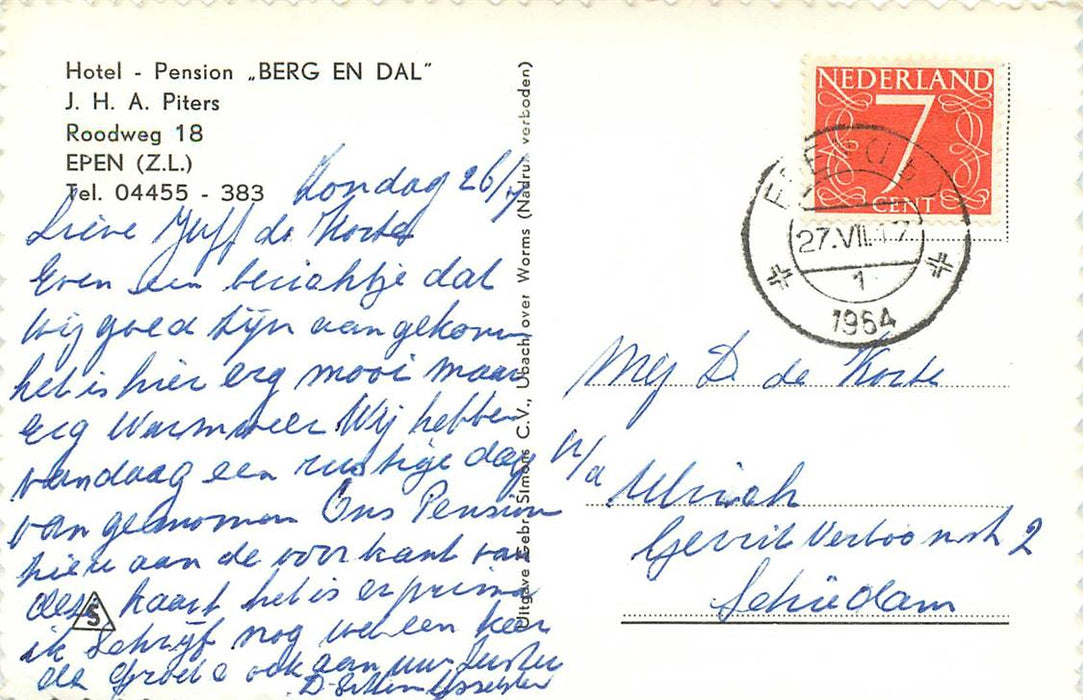 Hotel - Pension „BERG EN DAL"
J. H. A. Piters
Roodweg 18
EPEN (Z.L.)
Tel. 04455 - 383
Zondag 26/7
Lieve Juff de Korte
Even een berichtje dat
wij goed zijn aangekomen
het is hier erg mooi maar
erg warm weer Wij hebben
vandaag een rustige dag
van genomen Ons Pension
hier aan de voorkant van
de kaart het is er prima
ik schrijf nog wel een keer
de groete ook aan uw zuster
S
Uitgave Gebr. Simons C.V., Ubach over Worms (Nadruk verboden)
NEDERLAND
7
CENT
EPEN (LB)
27.VII.
1
1964
Mej D. de Korte
p/a
Gerrit Verboonstr 2
Schiedam